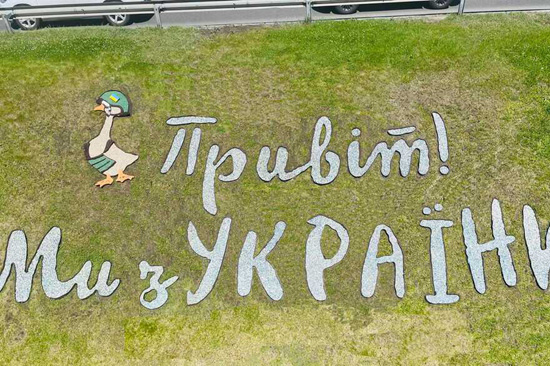 Привіт!
Ми з УКРАЇНИ